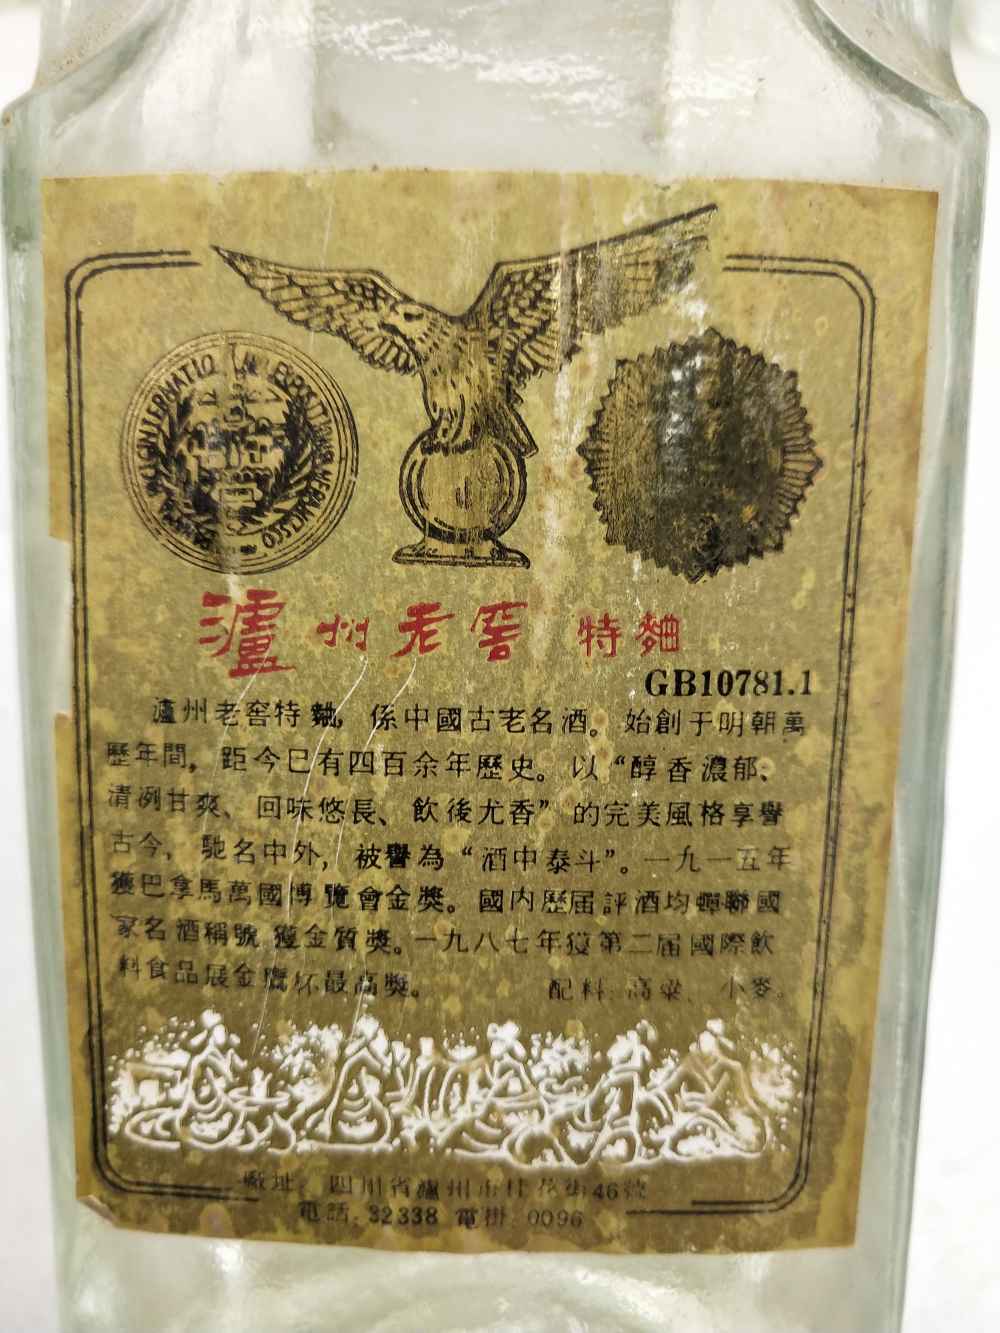 瀘州老窖 特麯
GB10781.1
瀘州老窖特麯，係中國古老名酒。始創于明朝萬
歷年間，距今已有四百余年歷史。以“醇香濃郁、
清冽甘爽、回味悠長、飲後尤香”的完美風格享譽
古今，馳名中外，被譽為“酒中泰斗”。一九一五年
獲巴拿馬萬國博覽會金獎。國内歷届評酒均蟬聯國
家名酒稱號 獲金質獎。一九八七年获第二届國際飲
料食品展金鷹杯最高獎。 配料：高粱、小麥。
廠址：四川省瀘州市桂花街46號
電話：32338 電掛：0096